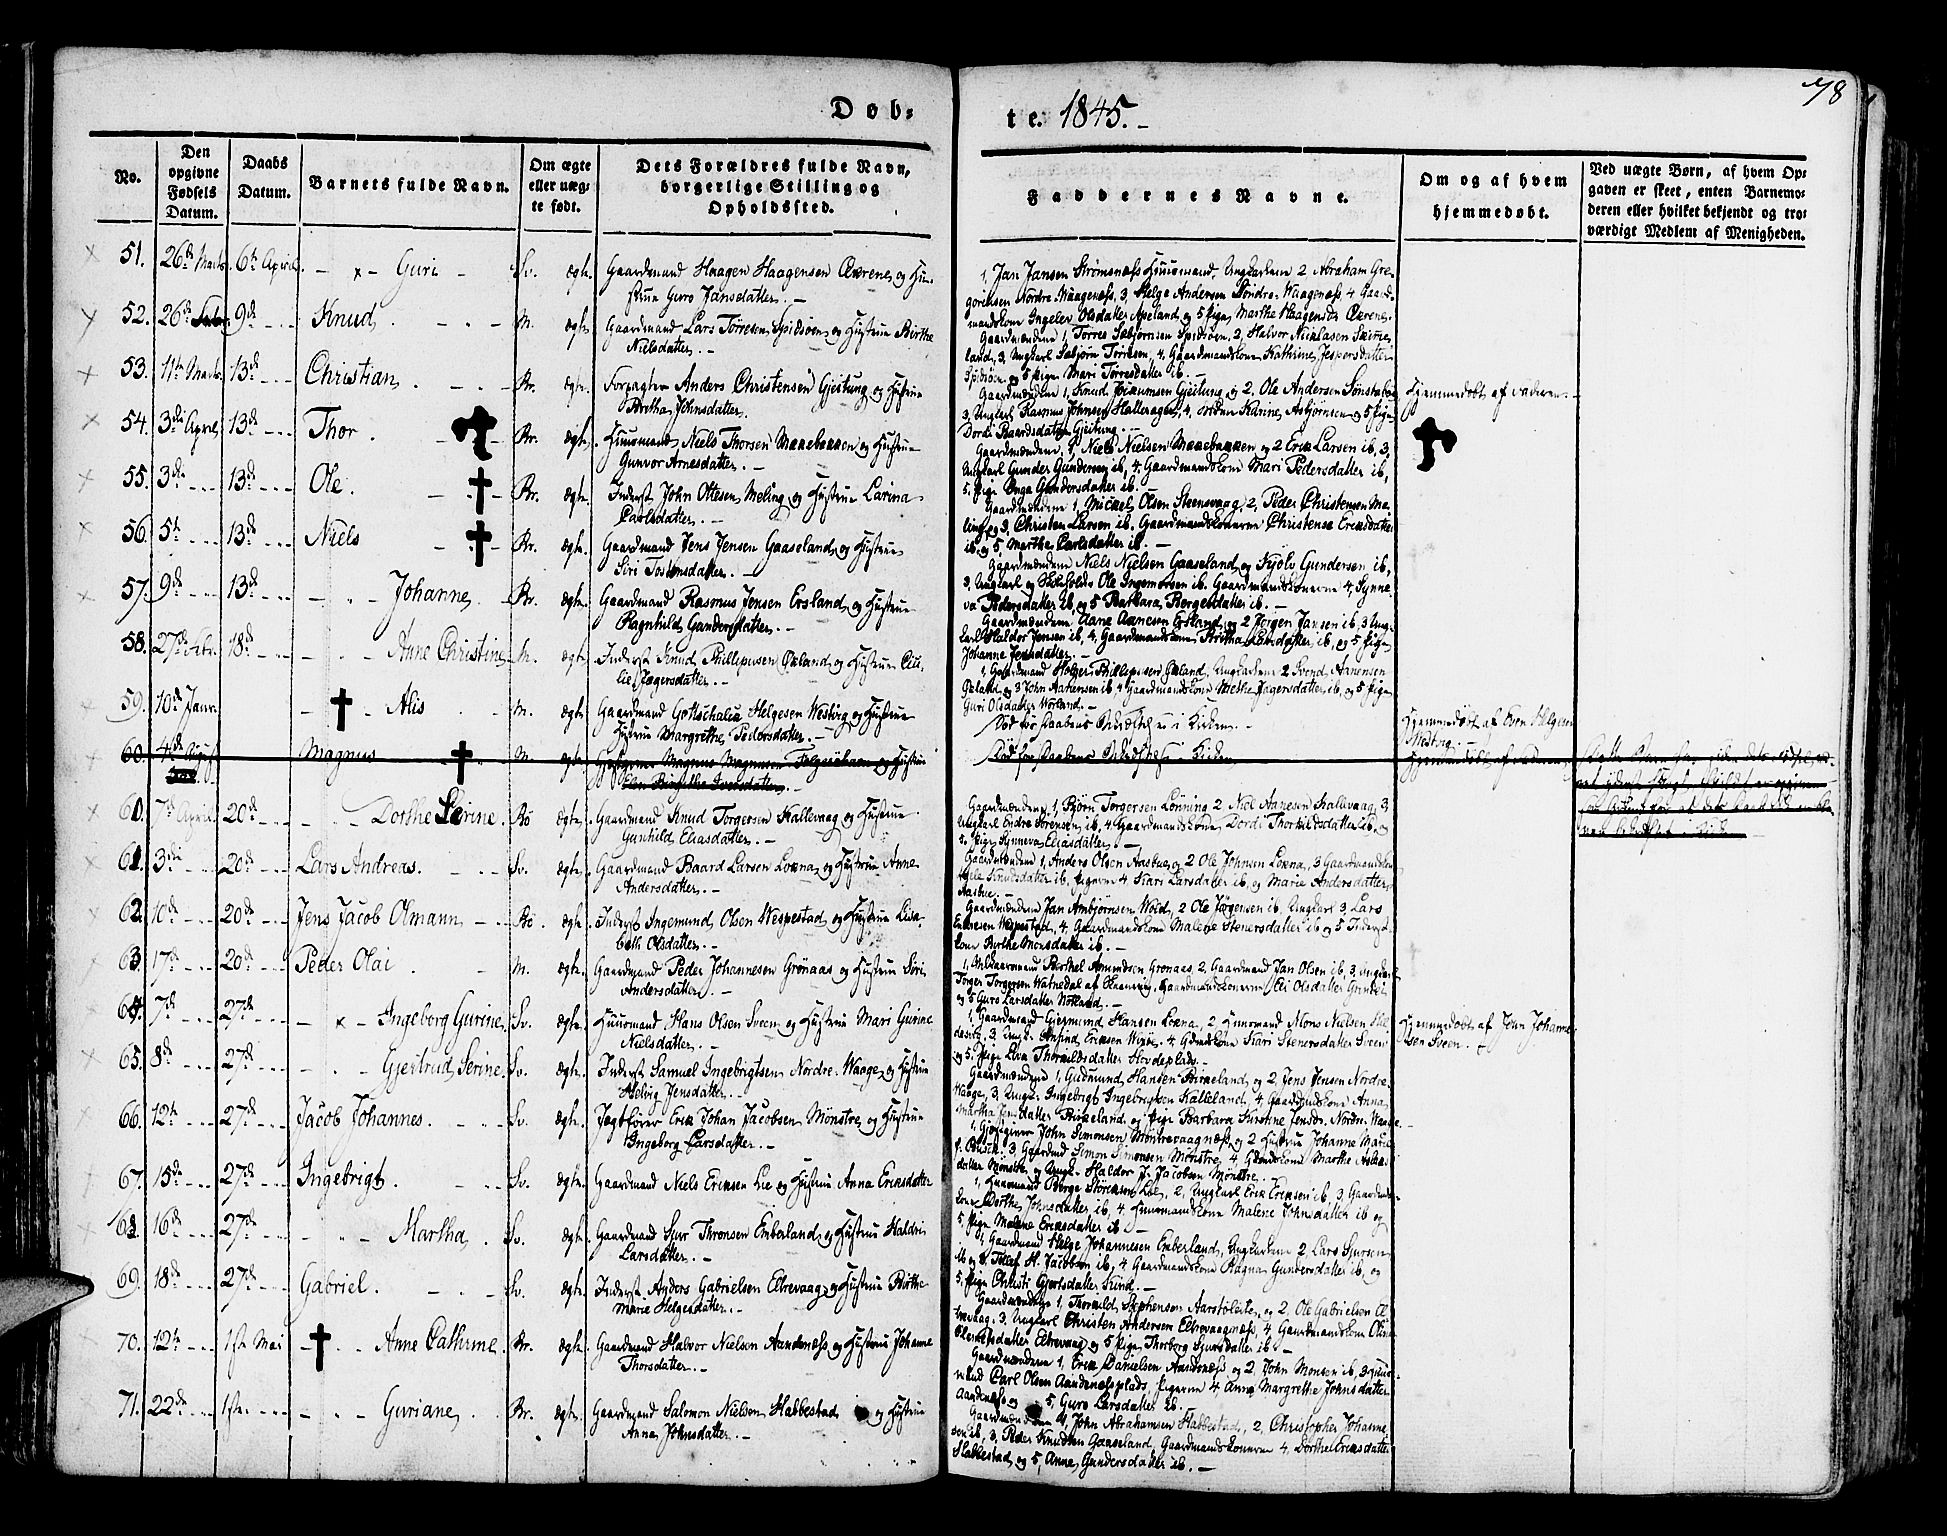 78
Døb-
te. 1845.
No.
Den opgivne Fødsels Datum.
Daabs Datum.
Barnets fulde Navn.
Om ægte eller uægte født.
Dets Forældres fulde Navn, borgerlige Stilling og Opholdssted.
Faddernes Navne.
Om og af hvem hjemmedøbt.
Ved uægte Børn, af hvem Opgaven er skeet, enten Barnemoderen eller hvilket bekjendt og troværdigt Medlem af Menigheden.
51. 26de Marts. 6te April. Guri Sv. ægte. Gaardmand Haagen Haagensen og Hustrue Guro Jansdatter.
1, Jan Jansen Strømsnæss Huusmand, Ungkarlene 2 Abraham Gregorensen Nordre Waagenæss, 3, Helge Andersen Søndre-Waagenæss, 4 Gaardmandskone Ingeler Olsdatter Apeland og 5 Pige, Martha Haagensdr
52. 26de 9de Knud M. ægte Gaardmand Lars Torresen Spidsøen og Hustrue Birthe Nielsdatter.
Gaardmændene 1, Torres Sæbjørnsen Spidsøen, 2, Halvor Nicklasen 3, Ungkarl Sæbjørn Torresen, 4. Gaardmandskone Kathrine Jespersdatter Spidsøen og 5 Pige Mari Torresdatter ib.
53. 11te Marts. 13de Christian Br. ægte. Forpagter Anders Christensen Gjeitung og Hustrue Birtha Johnsdatter.
Gaardmændene 1, Knud Gjeitung og 2. Ole Andersen 3, Ungkarl Rasmus Johnsen Hallerager, 4, Karine Asbjørnsen og 5 Pige Dordi Baardsdatter Gjeitung.
Hjemmedøbt af Faderen
54. 3die April 13de Thor. Br. ægte. Huusmand Niels Thorsen og Hustrue Gunvor Arnesdatter.
Gaardmændene, 1, Niels Nielsen og 2 Erik Larsen ib, 3, Ungkarl Gunder Gundersen ib, 4, Gaardmandskone Mari Pedersdatter ib, 5, Pige Inga Gundersdatter ib.
55. 3de 13de Ole. Br. ægte. Inderst John Ottesen Meling og Hustrue Larina Carlsdatter.
Gaardmændene 1, Mickel Olsen Steensvaag, 2, Peder Christensen Meling og 3, Christen Larsen ib. Gaardmandskonerne Christense Eriksdatter ib og 5, Martha Carlsdatter ib.
56. 5te 13de Niels Br. ægte. Gaardmand Jens Jensen Gaaseland og Hustrue Siri Tostensdatter.
Gaardmændene Niels Nielsen Gaaseland og Kjøls Gundersen ib, 3, Ungkarl og Ole Ingemorsen ib. Gaardmandskonerne 4, Synneva Pedersdatter ib, og 5 Barbara Børgesdatter ib.
57. 9de 13de Johanne Br. ægte. Gaardmand Rasmus Jensen Ersland og Hustrue Ragnhild Gundersdatter.
Gaardmændene Aane Aanesen Ersland og 2 Jørgen Jansen ib, 3 Ungkarl Haldor Jensen ib, 4, Gaardmandskone Britha Larsdatter ib, og 5 Pige Johanne Jensdatter.
58. 27de Febr. 18de Anne Christine M. ægte. Inderst Knud Phillepusen Økland og Hustrue Cillie Jægersdatter.
1, Gaardmand Holger Phillepusen Økland, Ungkarlene 2 Svend Aanensen og 3 John Aanensen ib, 4 Gaardmandskone Methe Jagersdatter, ib, og 5 Pige Guri Olsdatter
59. 10de Janr. Alis M. ægte. Gaardmand Gottschalk Helgesen Westvig og Hustrue Margrethe Pedersdatter.
Død før Daabens Stadfæstelse i Kirken.
Hjemmedøbt af Even Helgesen Westvig
60. 4de Magnus M. ægte. Magnus Magnusen og Hustrue Elen Birgithe Iversdatter.
Død før Daabens Stadfæstelse i Kirken
60 7de April. 20de Dorthe Serine. Bø ægte. Gaardmand Knud Torgersen Kallevaag og Hustrue Gunhild Eliasdatter.
Gaardmændene 1, Bjørn Torgersen Lønning 2 Niel Aanesen Kallevaag, 3 Ungkarl Endre Sørensen ib, 4 Gaardmandskone Dordi Thorkildsdatter ib. og 5. Pige Synneva Eliasdatter.
61. 3die 20de Lars Andreas. Sv. ægte. Gaardmand Baard Larsen Lokna og Hustrue Anne Andersdatter.
Gaardmændene 1, Anders Olsen Aasbue og 2 Ole Johnsen Lokna, 3 Gaardmandskone Knudsdatter ib, Pigerne 4 Kari Larsdatter ib, og Marie Andersdatter Aasbue.
62. 10de 20de Jens Jacob Olmann Bø. ægte. Inderst Ingemund Olsen Wespestad og Hustrue Lisabeth Olsdatter.
Gaardmændene Jan Ambjørnsen Wold, 2 Ole Jørgensen ib, Ungkarl 3, Lars Wespestad, 4. Gaardmandskone Malene Stenersdatter ib og 5 Inderstkone Berthe Monsdatter ib.
63 17de 20de Peder Olai M. ægte. Gaardmand Peder Johannesen Grønaas og Hustrue Siri Andersdatter.
1, Berthel Amundsen Grønaas, 2, Gaardmand Jan Olsen ib, 3, Ungkarl Torger Torgersen Watnedal, Gaardmandskonerne Eli Olsdatter og 5 Guro Larsdatter Nolland.
64. 7de 27de Ingeborg Gurine Sv. ægte. Huusmand Hans Olsen Sveen og Hustrue Mari Gurine Nielsdatter.
1, Gaardmand Gjermund Hansen Lokna, 2, Huusmand Mons Nielsen 3, Ungk. Arnfind Eriksen 4. Gdmdskone Kari Stenersdatter Sveen og 5. Pige Liva Thorkildsdatter Hovdeplads.
Hjemmedøbt af John Johannesen Sveen.
65. 8de 27de Gjertrud Serine. Sv. ægte. Inderst Samuel Ingebrigtsen Nordre-Waage og Hustrue Helvig Jensdatter.
Gaardmændene 1, Gudmund Hansen Birkeland og 2, Jens Jensen Nordre-Waage, 3, Ungk. Ingebrigt Ingebrigtsen Kalleland, 4 Gaardmandskone Anna Martha Jensdatter Birkeland, og Pige Barbara Kirstine Jensdr. Nordre-Waage.
66. 12te 27de Jacob Johannes. Sv. ægte. Jægtfører Erik Johan Jacobsen Mønstre og Hustrue Ingeborg Larsdatter.
1, Gjæstgiver John Simonsen Mønstrevaagnæss og 2 Hustrue Johanne Maria f. Busch, 3 Gaardmd Simon Simonsen Mønstre, 4 Gdmdskone Marthe datter Mønstre, og Ungk. Haldor J. Jacobsen Mønstre.
67. 15de 27de Ingebrigt. Sv. ægte. Gaardmand Niels Eriksen Lie og Hustrue Anna Eriksdatter
1, Huusmand Børge Størksen Lie, 2, Ungkarl Erik Eriksen ib, 3, Gaardmandskone Dorthe Johnsdatter ib, 4 Huusmandskone Malene Johnsdatter ib og 5. Pige Malene Eriksdatter ib
68 16de 27de Martha. Sv. ægte. Gaardmand Sjur Thronsen Emberland og Hustrue Haldri Larsdatter.
1, Gaardmand Helge Johannesen Emberland, Ungkarlene 2, Lars Sjursen ib og 3, H. Jacobsen ib, 4 Gaardmandskone Ragna Gundersdatter ib, og 5, Pige Christi Gjertsdatter
69. 18de 27de Gabriel. Sv. ægte. Inderst Anders Gabrielsen Eltrevaag og Hustrue Birthe Marie Helgesdatter.
Gaardmændene 1, Thorkild Stephensen Aarstøleite, og 2, Ole Gabrielsen Eltrevaag, 3, Ungkarl Christen Andersen Eltrevaagnæss, 4 Gaardmandskone Olina Clemetsdatter Eltrevaag og 5 Pige Thorborg Sjursdatter ib
70. 12te 1ste Mai Anne Cathrine Br. ægte. Gaardmand Halvor Nielsen Aandenæss og Hustrue Johanne Thorsdatter.
Gaardmændene 1, Erik Danielsen Aandenæss og 2, John Monsen ib, 3 Huusmand Carl Olsen Aandenæssplads, Pigerne 4 Anna Margrethe Johnsdatter Aandenæss og 5, Guro Larsdatter ib.
71. 22de 1ste Guriane Br. ægte. Gaardmand Salomon Nielsen Habbestad og Hustrue Anna Johnsdatter.
Gaardmændene 1, John Abrahamsen Habbestad, 2, Christopher Johannesen ib, 3, Peder Knudsen Gaaseland, Gaardmandskonerne 4, Dorthe Eriksdatter Habbestad, og 5, Anne Gundersdatter ib.